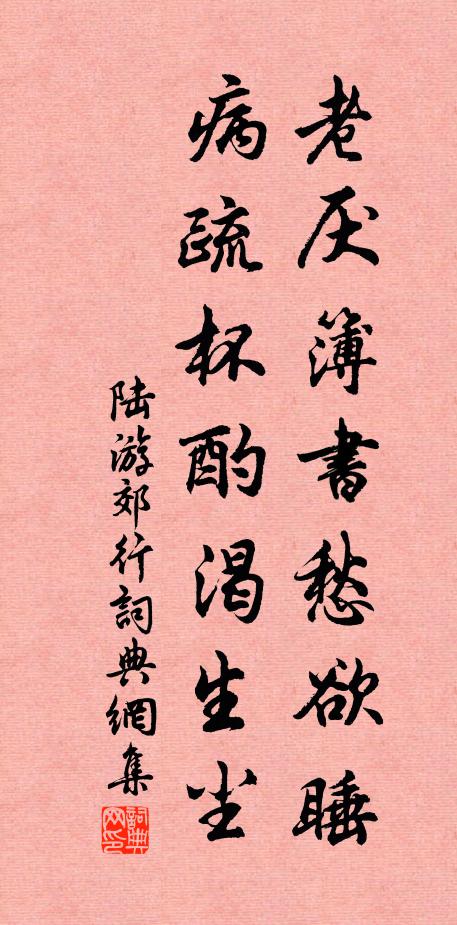 老厌簿書愁欲睡
病疏杯酌渴生尘
陆游郊行詞典網集
詞典网印